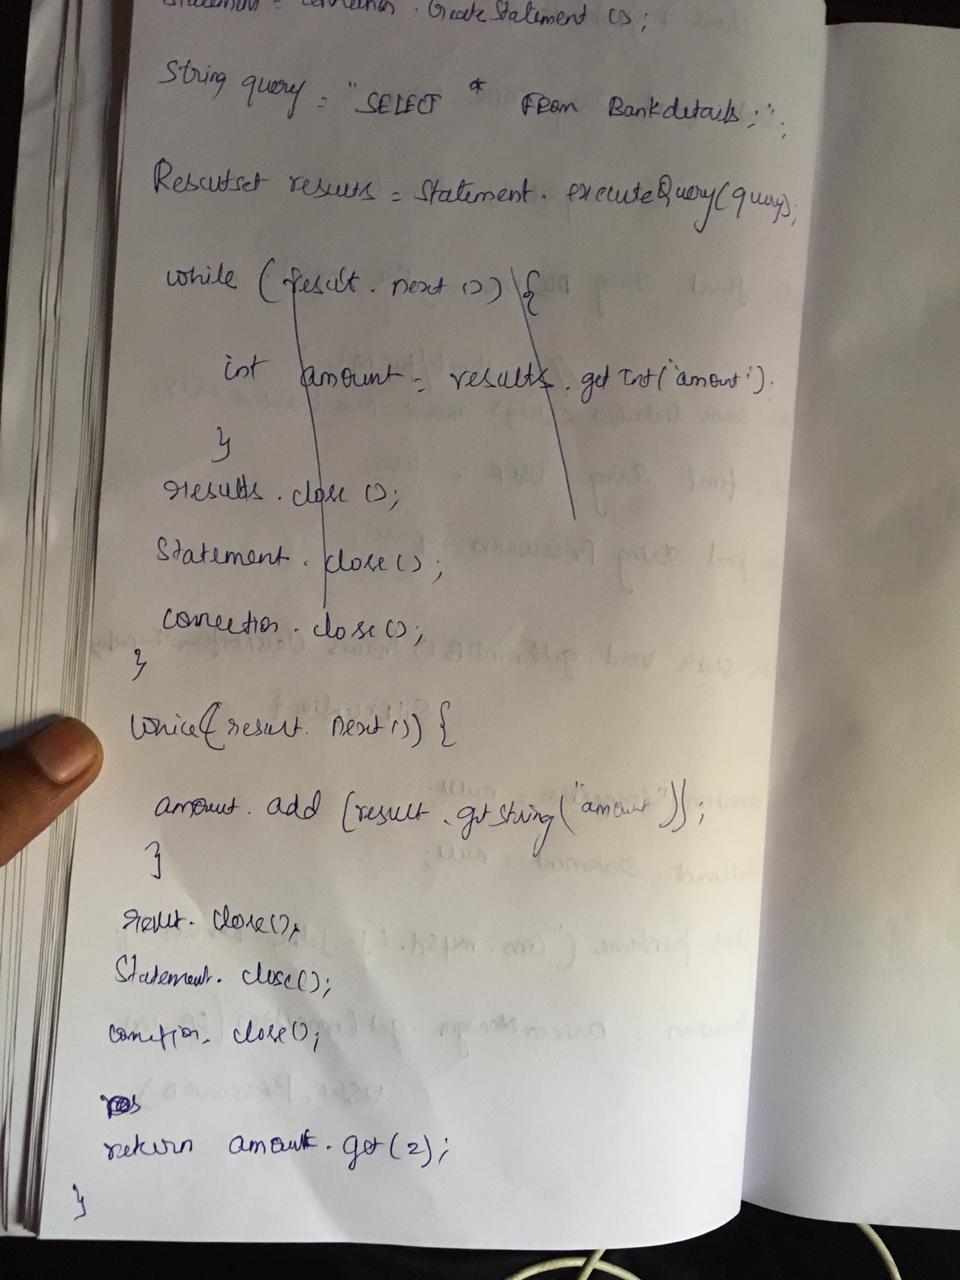 Statement = connection . Create Statement ();
String query = "SELECT * FROM Bankdetails;";
Resultset results = Statement . executeQuery(query);
while (result . next ()) {
int amount = results . get Int('amount').
}
results . close ();
Statement . close ();
connection . close ();
}
while (result . next ()) {
amount . add (result . getString("amount"));
}
result . close ();
Statement . close ();
conection . close ();
return amount . get (2);
}